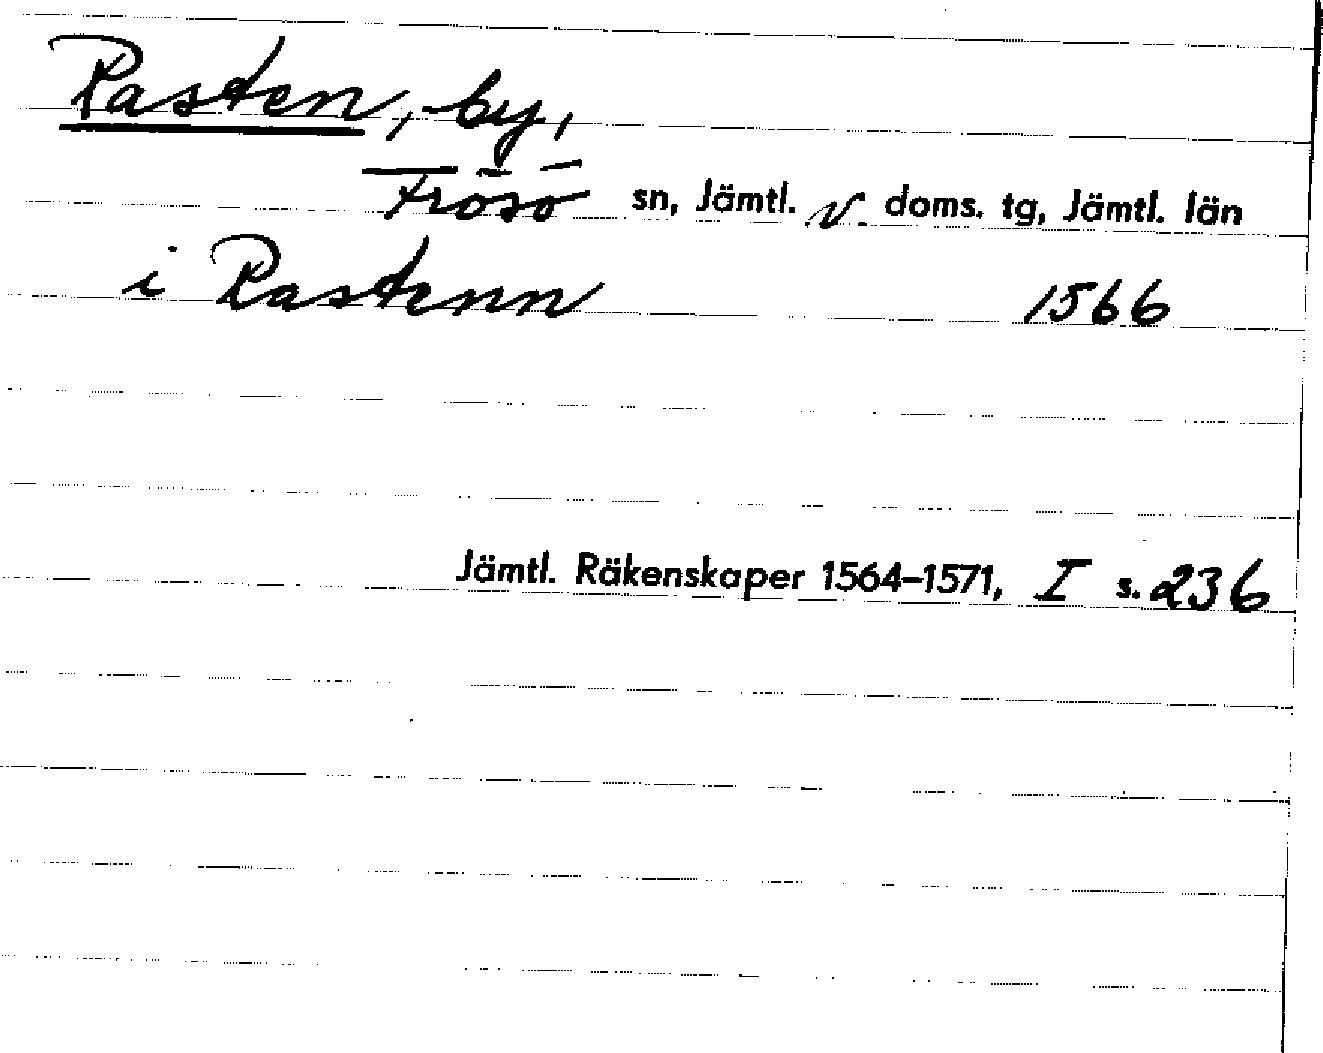 Rasten, by,
Frösö sn, Jämtl. v doms. tg, Jämtl. län
i Rastenn 1566
Jämtl. Räkenskaper 1564–1571, I s. 236